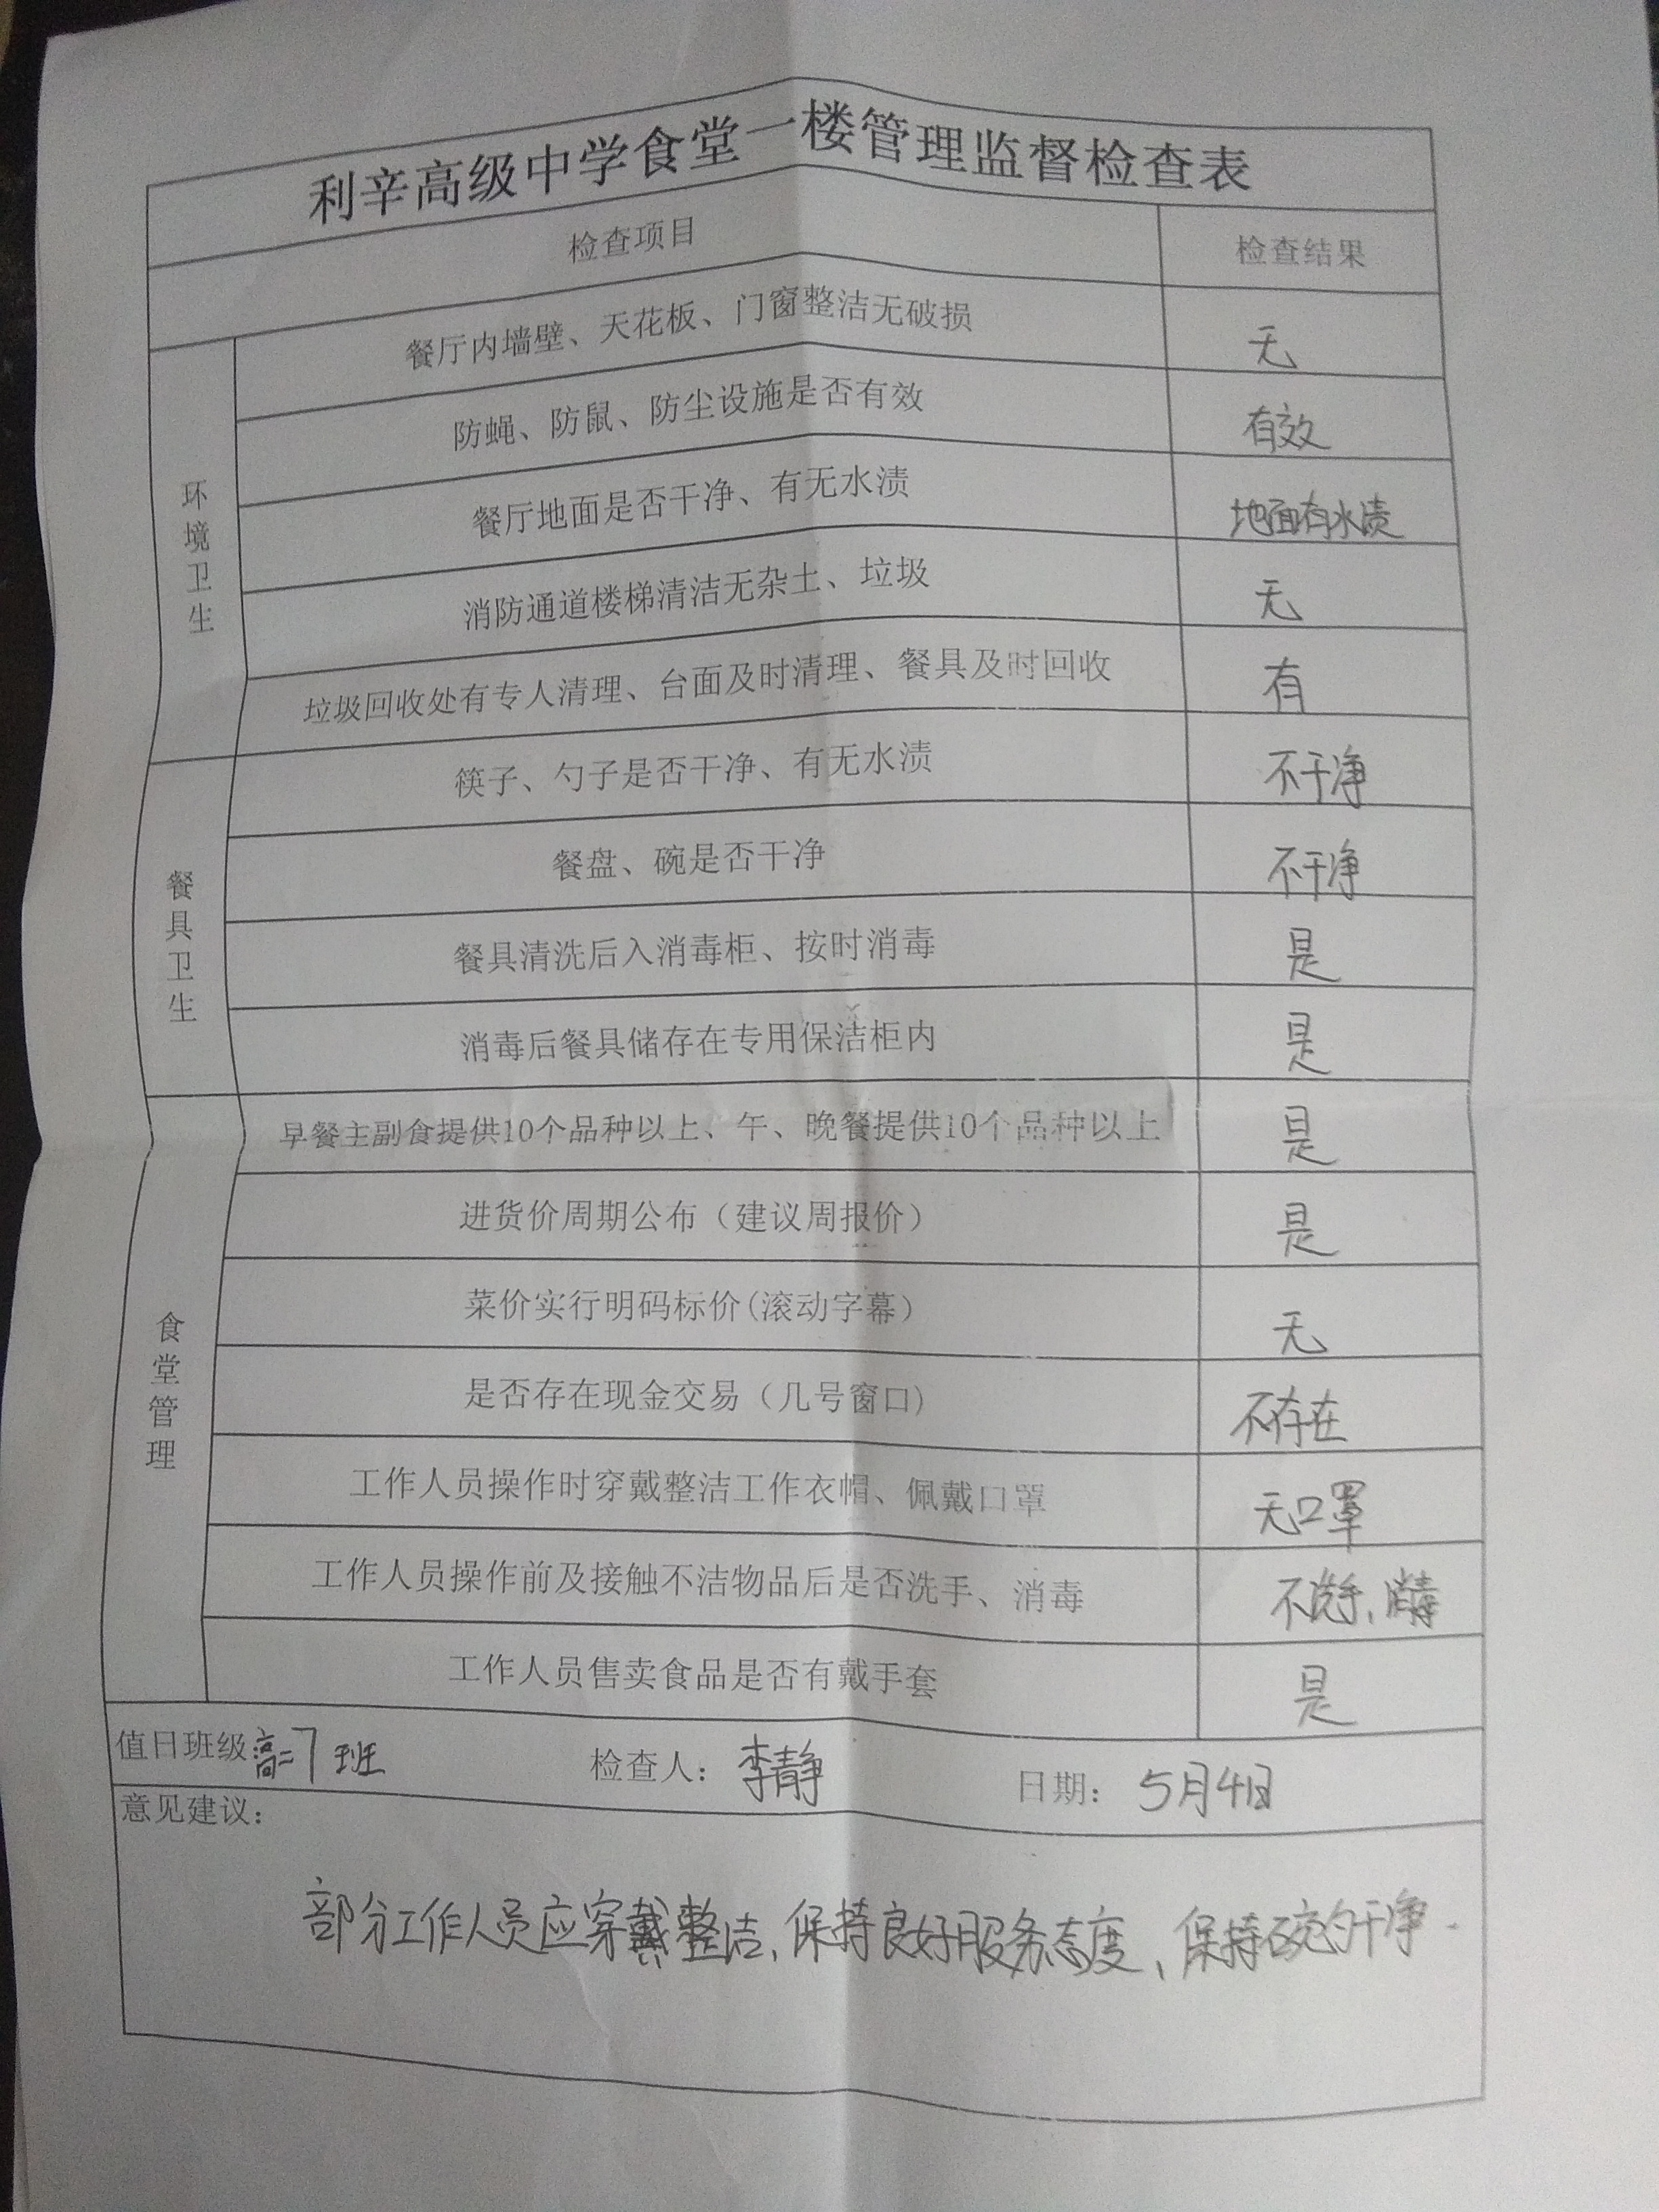 利辛高级中学食堂一楼管理监督检查表
检查项目 检查结果
环境卫生
餐厅内墙壁、天花板、门窗整洁无破损 无
防蝇、防鼠、防尘设施是否有效 有效
餐厅地面是否干净、有无水渍 地面有水渍
消防通道楼梯清洁无杂土、垃圾 无
垃圾回收处有专人清理、台面及时清理、餐具及时回收 有
餐具卫生
筷子、勺子是否干净、有无水渍 不干净
餐盘、碗是否干净 不干净
餐具清洗后入消毒柜、按时消毒 是
消毒后餐具储存在专用保洁柜内 是
食堂管理
早餐主副食提供10个品种以上、午、晚餐提供10个品种以上 是
进货价周期公布（建议周报价） 是
菜价实行明码标价(滚动字幕） 无
是否存在现金交易（几号窗口) 不存在
工作人员操作时穿戴整洁工作衣帽、佩戴口罩 无口罩
工作人员操作前及接触不洁物品后是否洗手、消毒 不洗手、消毒
工作人员售卖食品是否有戴手套 是
值日班级 高二7班 检查人： 李静 日期： 5月4日
意见建议：
部分工作人员应穿戴整洁、保持良好服务态度、保持碗的干净.